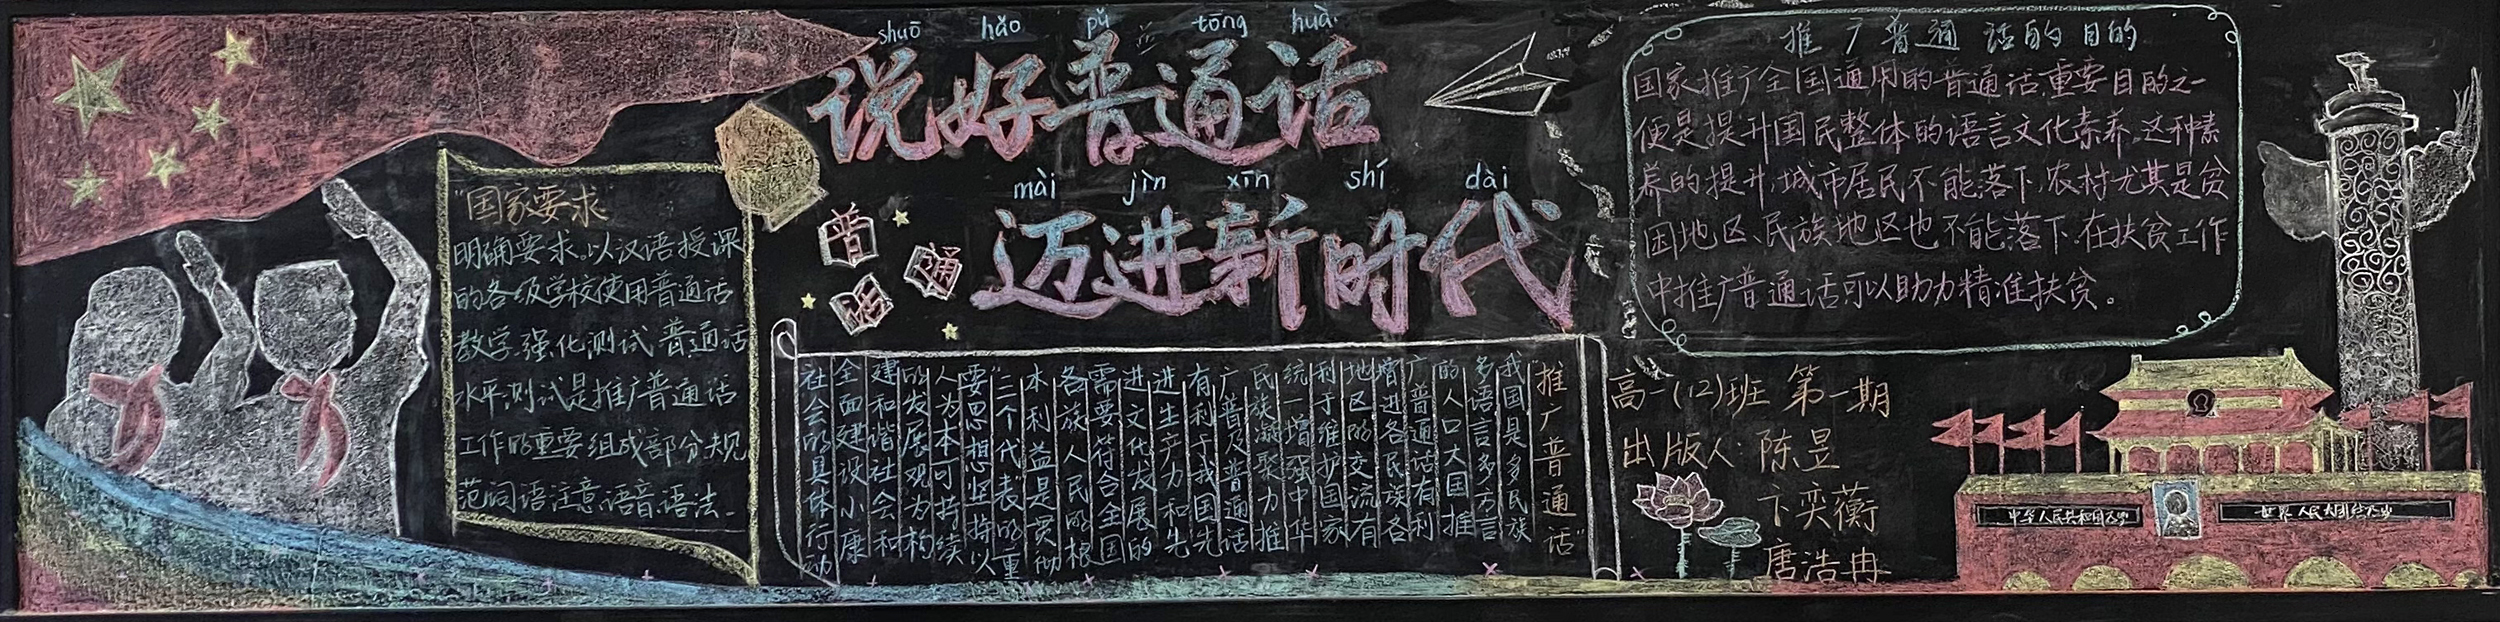 shuō hǎo pǔ tōng huà
说好普通话
mài jìn xīn shí dài
迈进新时代
普
通
话
"国家要求
明确要求。以汉语授课
的各级学校使用普通话
教学.强化测试.普通话
水平测试是推广普通话
工作的重要组成部分.规
范词语注意.语音.语法.
"推广普通话"
我国是多民族
多语言多方言
的人口大国推
广普通话有利
增进各民族各
地区的交流有
利于维护国家
统一增强中华
民族凝聚力推
广普及普通话
有利于我国先
进生产力和先
进文化发展的
需要符合全国
各族人民的根
本利益是贯彻
"三个代表"的重
要思想坚持以
人为本可持续
的发展观为构
建和谐社会和
全面建设小康
社会的具体行动
推广普通话的目的
国家推广全国通用的普通话,重要目的之一
便是提升国民整体的语言文化素养.这种素
养的提升,城市居民不能落下,农村尤其是贫
困地区、民族地区也不能落下.在扶贫工作
中推广普通话可以助力精准扶贫。
高一(12)班 第一期
出版人:陈昱
卞奕蘅
唐浩冉
中华人民共和国万岁
世界人民大团结万岁